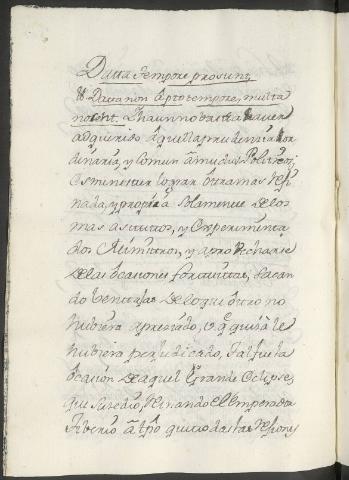 Datta tempore prosunt,
& Data non apto tempore, multa
nocent. Y haun no basta haver
adquirido aquella prudenzia or
dinaria, y comun a muchos Politicos;
Es menester lograr otra mas refi
nada, y propria solamente de los
mas astutos, y Experimenta
dos Ministros, y aprovecharse
de las ocasiones fortuittas, sacan
do bentajas de lo que otro no
hubiera apreziado, o q̃ quisá le
hubiera perjudicado, Tal fue la
ocasion de aquel Grande Eclipse
que suzedió, Reinando el Emperador
Tiberio a tp̃o que todas las Lejiones